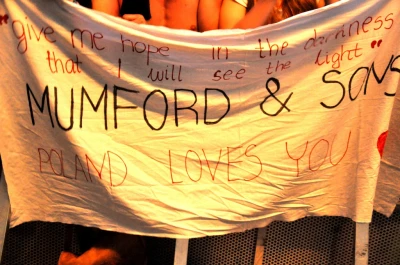 "give me hope in the darkness
that I will see the light"
MUMFORD & SONS
POLAND LOVES YOU